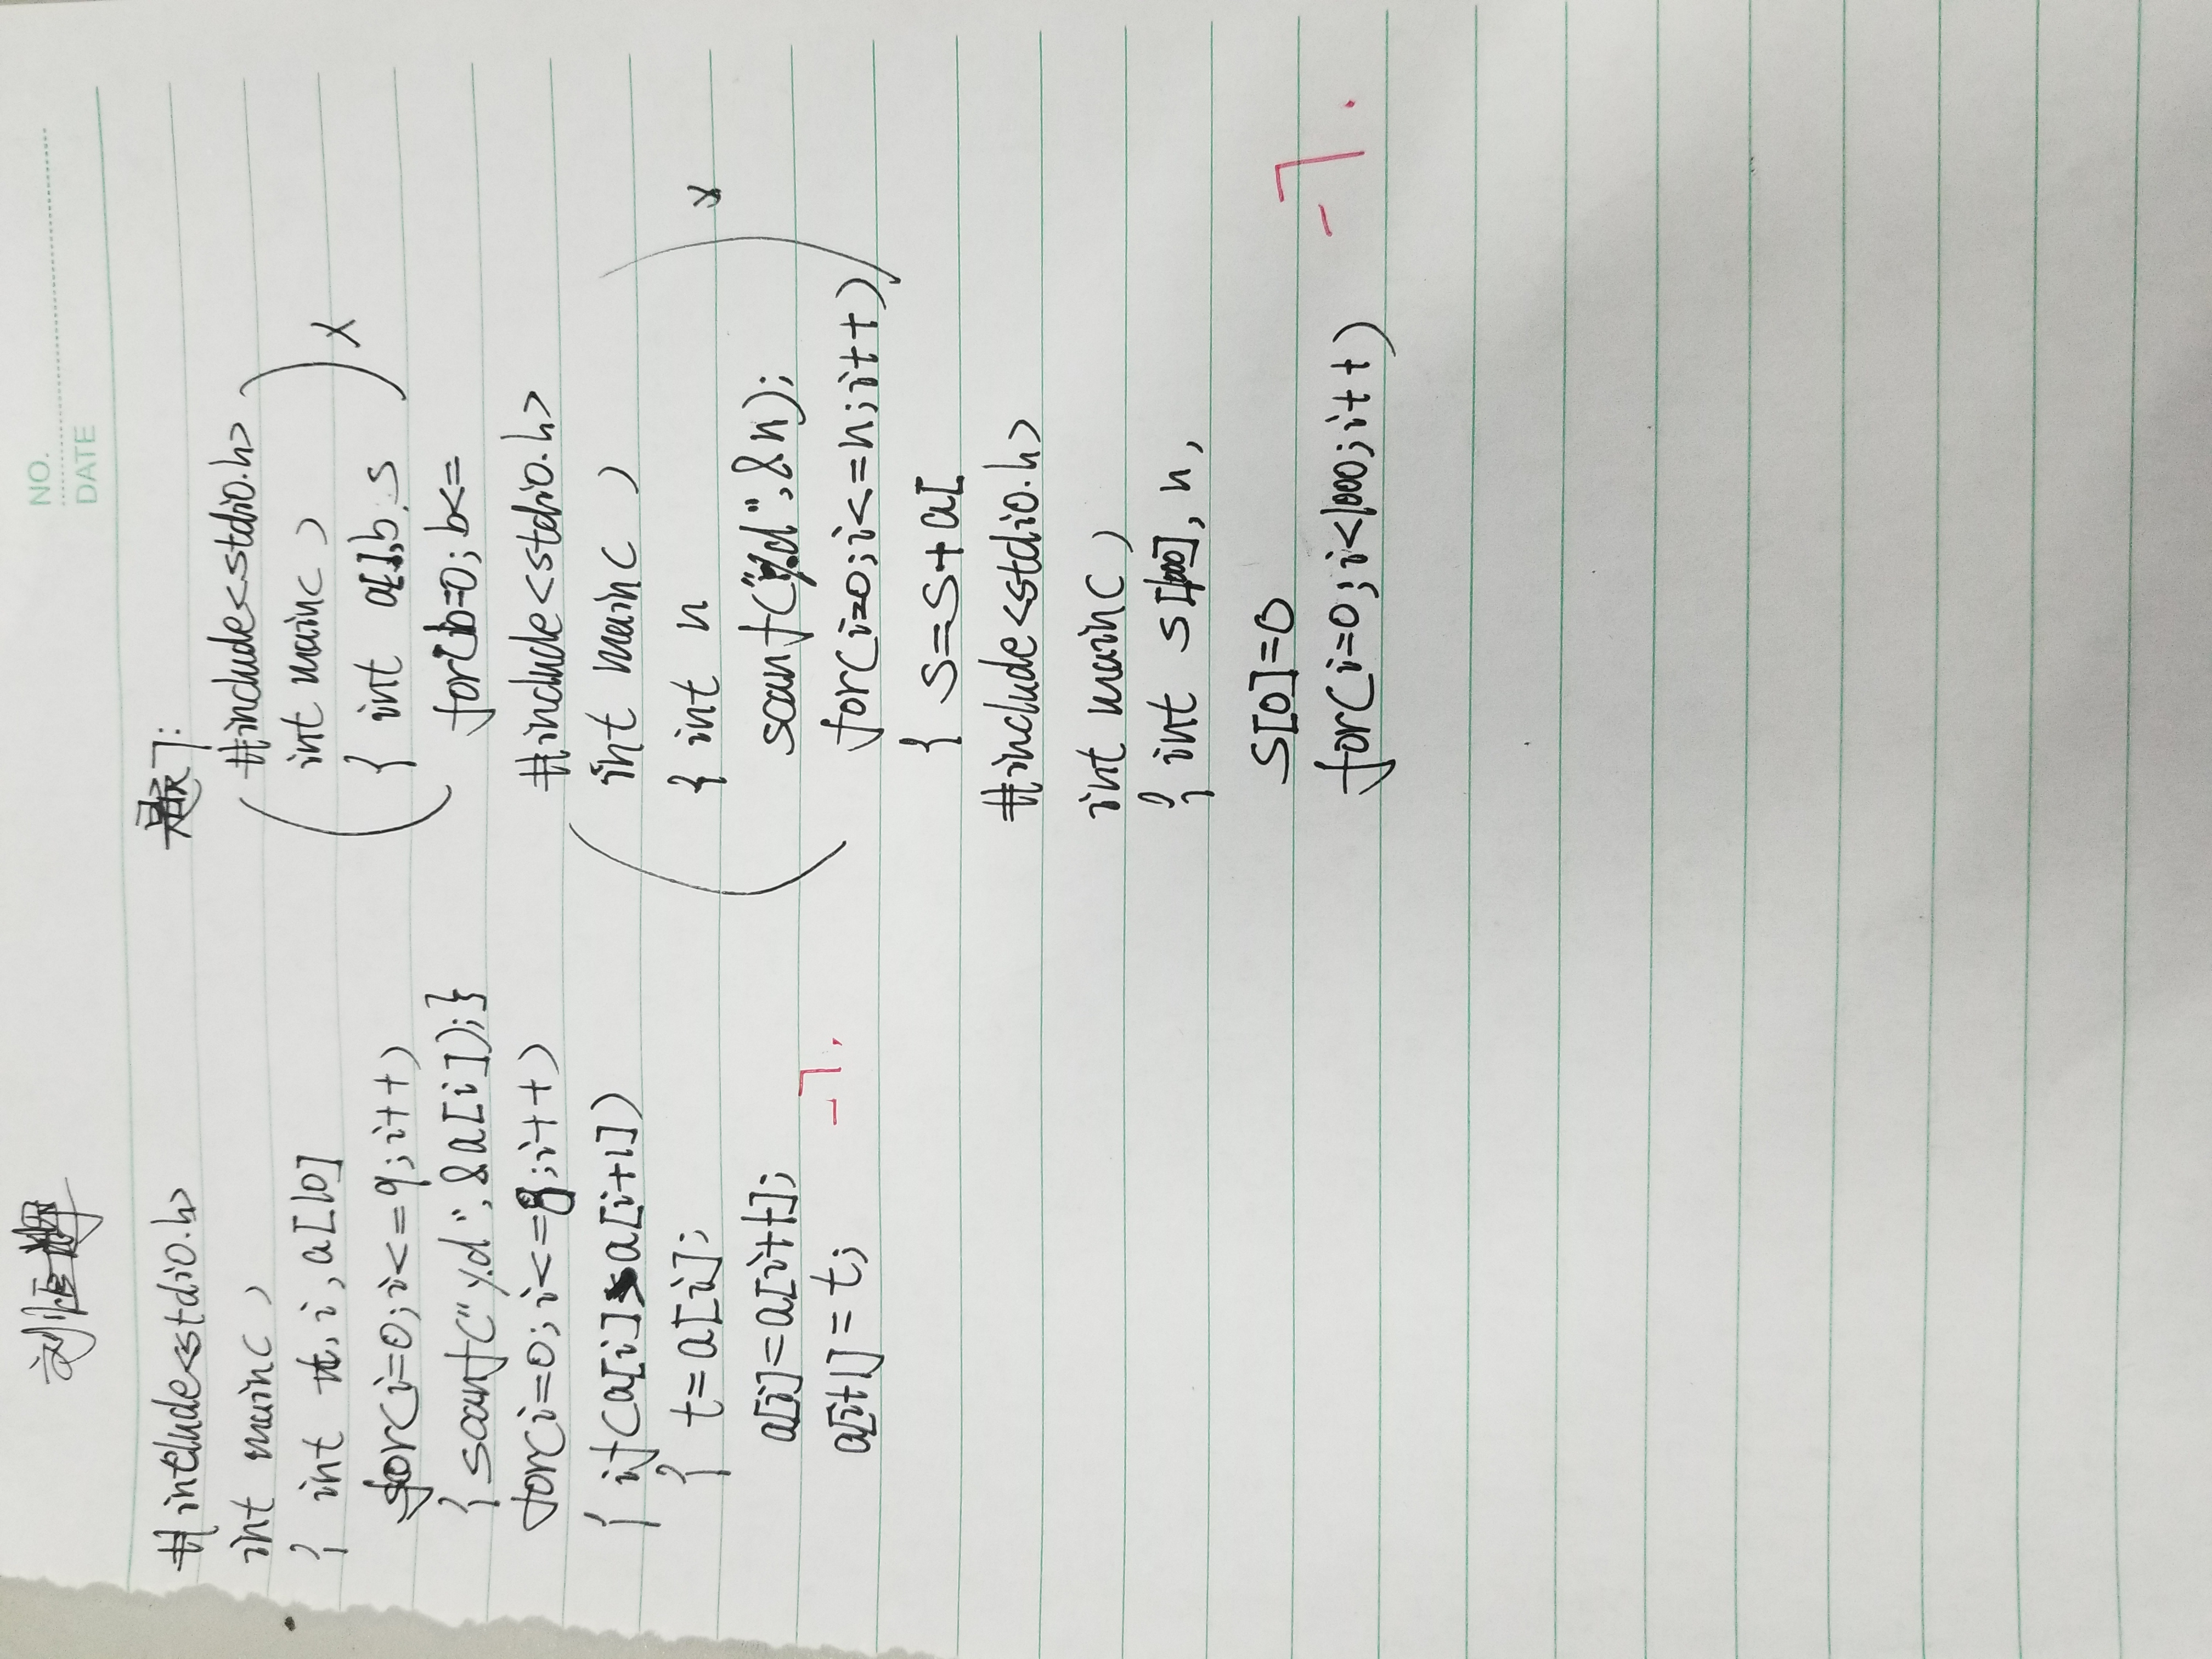 刘恒辉
NO.
DATE
#include<stdio.h>
int main( )
{ int t, i, a[10]
for(i=0;i<=9;i++)
{ scanf("%d",&a[i]);}
for(i=0;i<=8;i++)
{ if(a[i]>a[i+1])
{ t=a[i];
a[i]=a[i++];
a[i+1]=t;
-7.
题7:
#include<stdio.h>
int main( )
{ int a[],b,s
for(b=0;b<=
×
#include<stdio.h>
int main( )
{ int n
scanf("%d",&n);
for(i=0;i<=n;i++)
{ s=s+a[
×
#include<stdio.h>
int main( )
{ int s[1000], n,
s[0]=0
for(i=0;i<1000;i++)
-7.